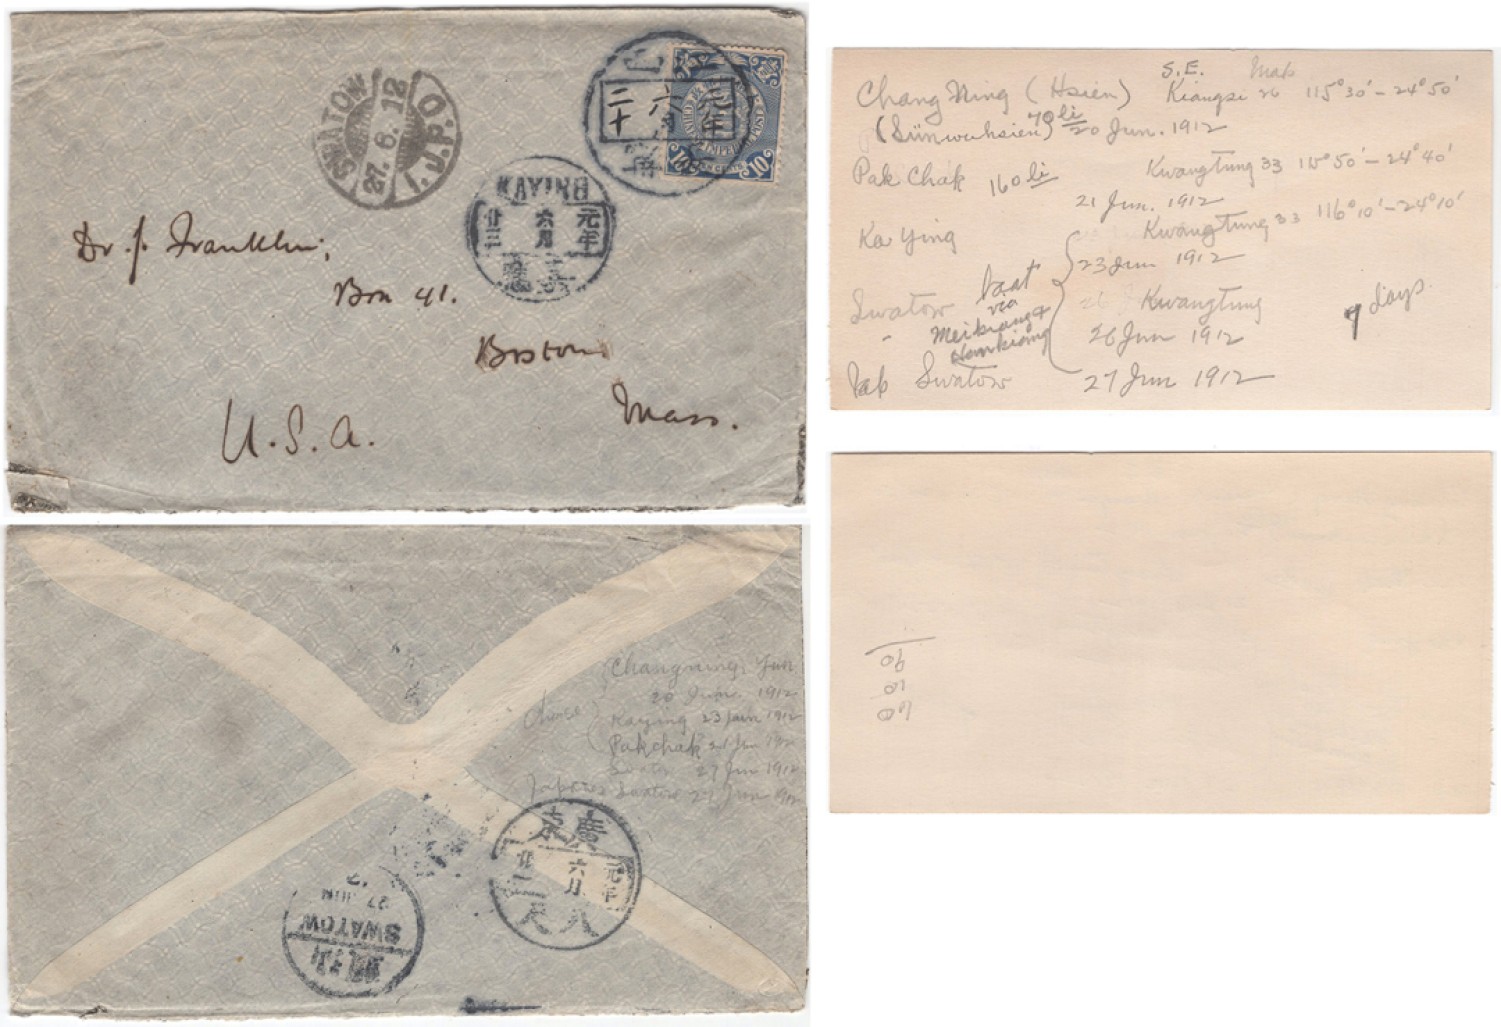 SWATOW
27. 6. 12
I.J.P.O.
元年
六月
二十
CHINESE IMPERIAL POST
10 10
KAYING
元年
六月
廿三
嘉應
Dr. J. Franklin,
Box 41.
Boston
Mass.
U.S.A.
Changning, Jun
20 Jun. 1912
Chinese
Kaying 23 Jun 1912
Pakchak 21 Jun 1912
Swatow 27 Jun 1912
Japanese Swatow 27 Jun 1912
廣東
元年
六月
廿一
八尺
汕頭
SWATOW
27 JUN
12
S.E. Map
Chang Ning (Hsien) Kiangsi 26 115°30'-24°50'
(Sünwuhsien) 70 li 20 Jun. 1912
Pak Chak 160 li Kwangtung 33 115°50'-24°40'
21 Jun. 1912
Ka Ying Kwangtung 33 116°10'-24°10'
23 Jun 1912
Swatow boat via Meikiang + Hankiang Kwangtung
26 Jun 1912
7 days.
Jap Swatow 27 Jun 1912